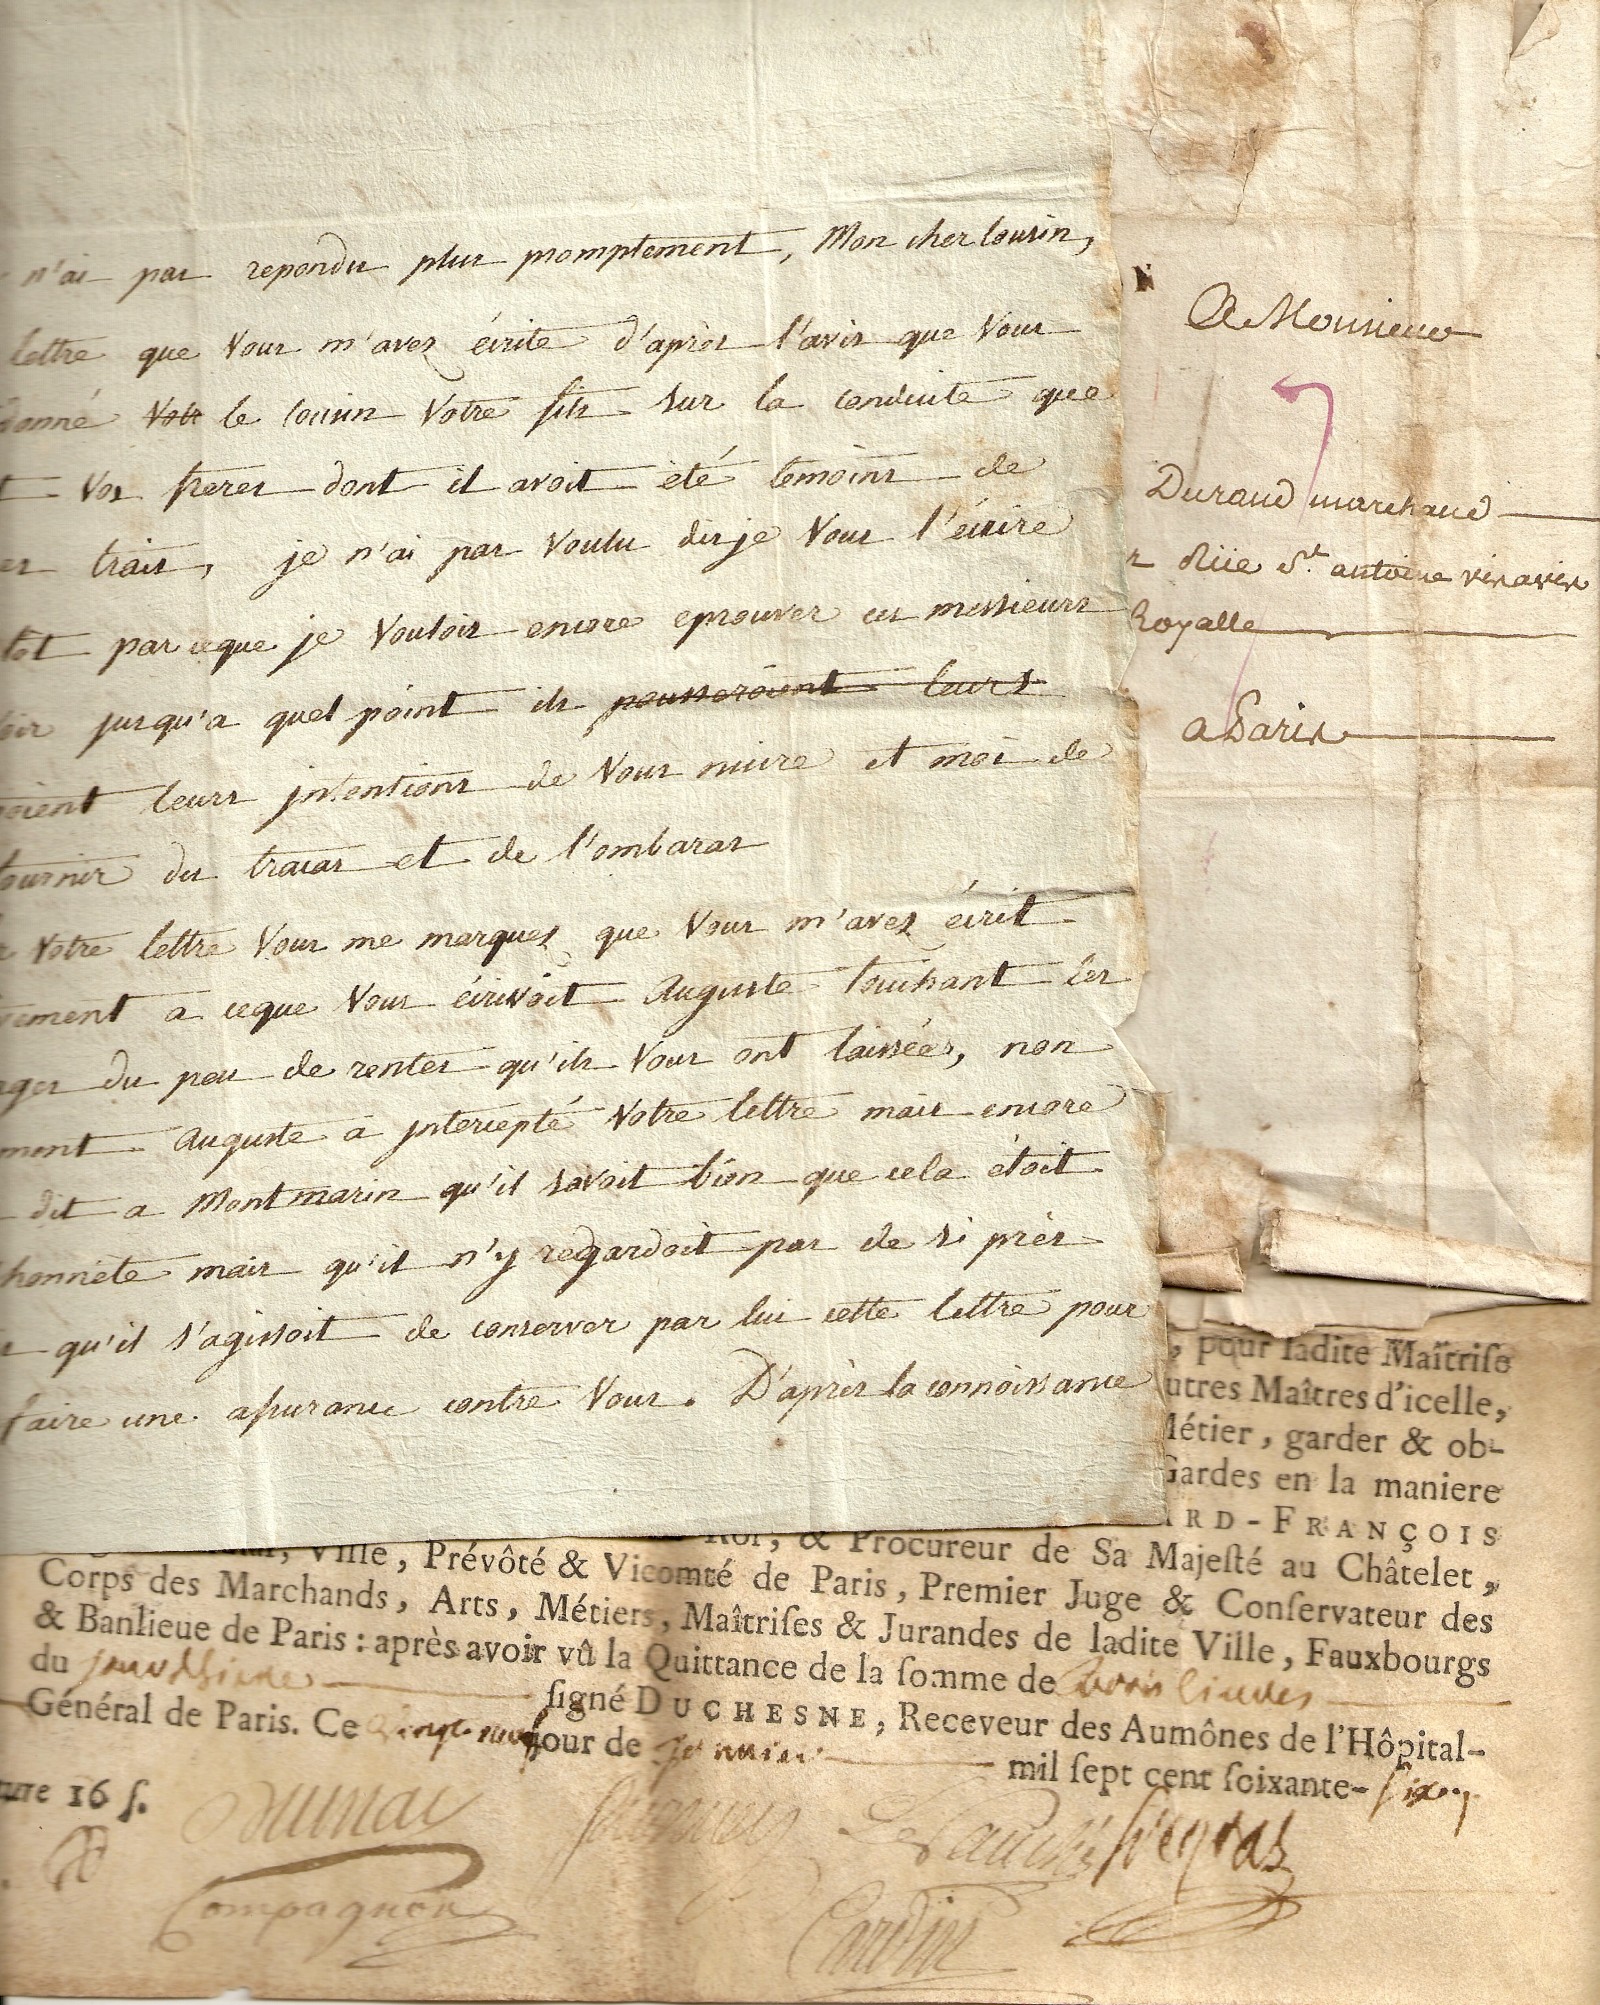 n'ai pas repondu plus promptement, Mon cher Cousin,
lettre que Vous m'aves écrite d'après l'avis que Vous
donné le cousin Votre fils sur la conduite que
Vos freres dont il avoit été temoins de
trais, je n'ai pas Voulu disje Vous l'écrire
tot parceque je Voulois encore eprouver ces messieurs
jusqu'a quel point ils pousseroient leurs
oient leurs jntentions de Vous nuire et moi de
fournir du tracas et de l'ombaras
Votre lettre Vous me marques que Vous m'aves écrit
vement a ceque Vous écrivoit Auguste touchant les
ages du peu de rentes qu'ils Vous ont laissées, non
ment Auguste a jntercepté Votre lettre mais encore
dit a Montmarin qu'il savoit bien que cela étoit
honnête mais qu'il n'y regardoit pas de si près
qu'il s'agissoit de conserver par lui cette lettre pour
faire une assurance contre Vous. D'après la connoissance
A Monsieur
Durand marchand
Rüe St. antoine visavis
Royalle
a Paris
, pour ladite Maîtriſe
utres Maîtres d'icelle,
Métier, garder & ob-
Gardes en la maniere
ARD-FRANÇOIS
Roi, & Procureur de Sa Majeſté au Châtelet,
Ville, Prévôté & Vicomté de Paris, Premier Juge & Conſervateur des
Corps des Marchands, Arts, Métiers, Maîtriſes & Jurandes de ladite Ville, Fauxbourgs
& Banlieue de Paris : après avoir vû la Quittance de la ſomme de trois livres
du jourdhier ſigné DUCHESNE, Receveur des Aumônes de l'Hôpital-
Général de Paris. Ce vingt neuf jour de janvier mil ſept cent ſoixante-six
ture 16 ſ.
Compagnon
Cardin